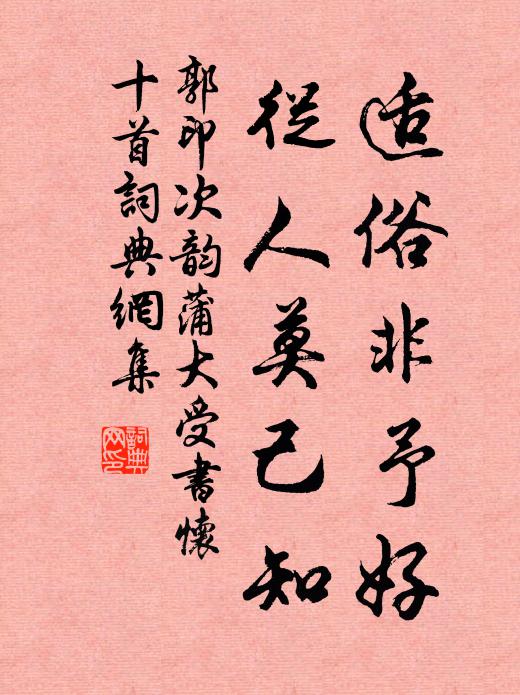 适俗非予好
從人莫己知
郭印次韵蒲大受書懷
十首詞典網集
詞典網印